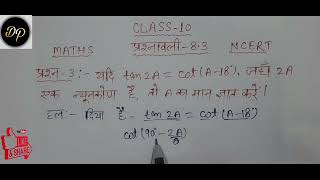 DP
CLASS-10
MATHS प्रश्नावली-8.3 NCERT
प्रश्न-3:- यदि tan 2A = cot (A-18°), जहाँ 2A
एक न्यूनकोण है, तो A का मान ज्ञात करें।
हल:- दिया है- tan 2A = cot (A-18°)
cot (90° - 2A)
LIKE
& SHARE